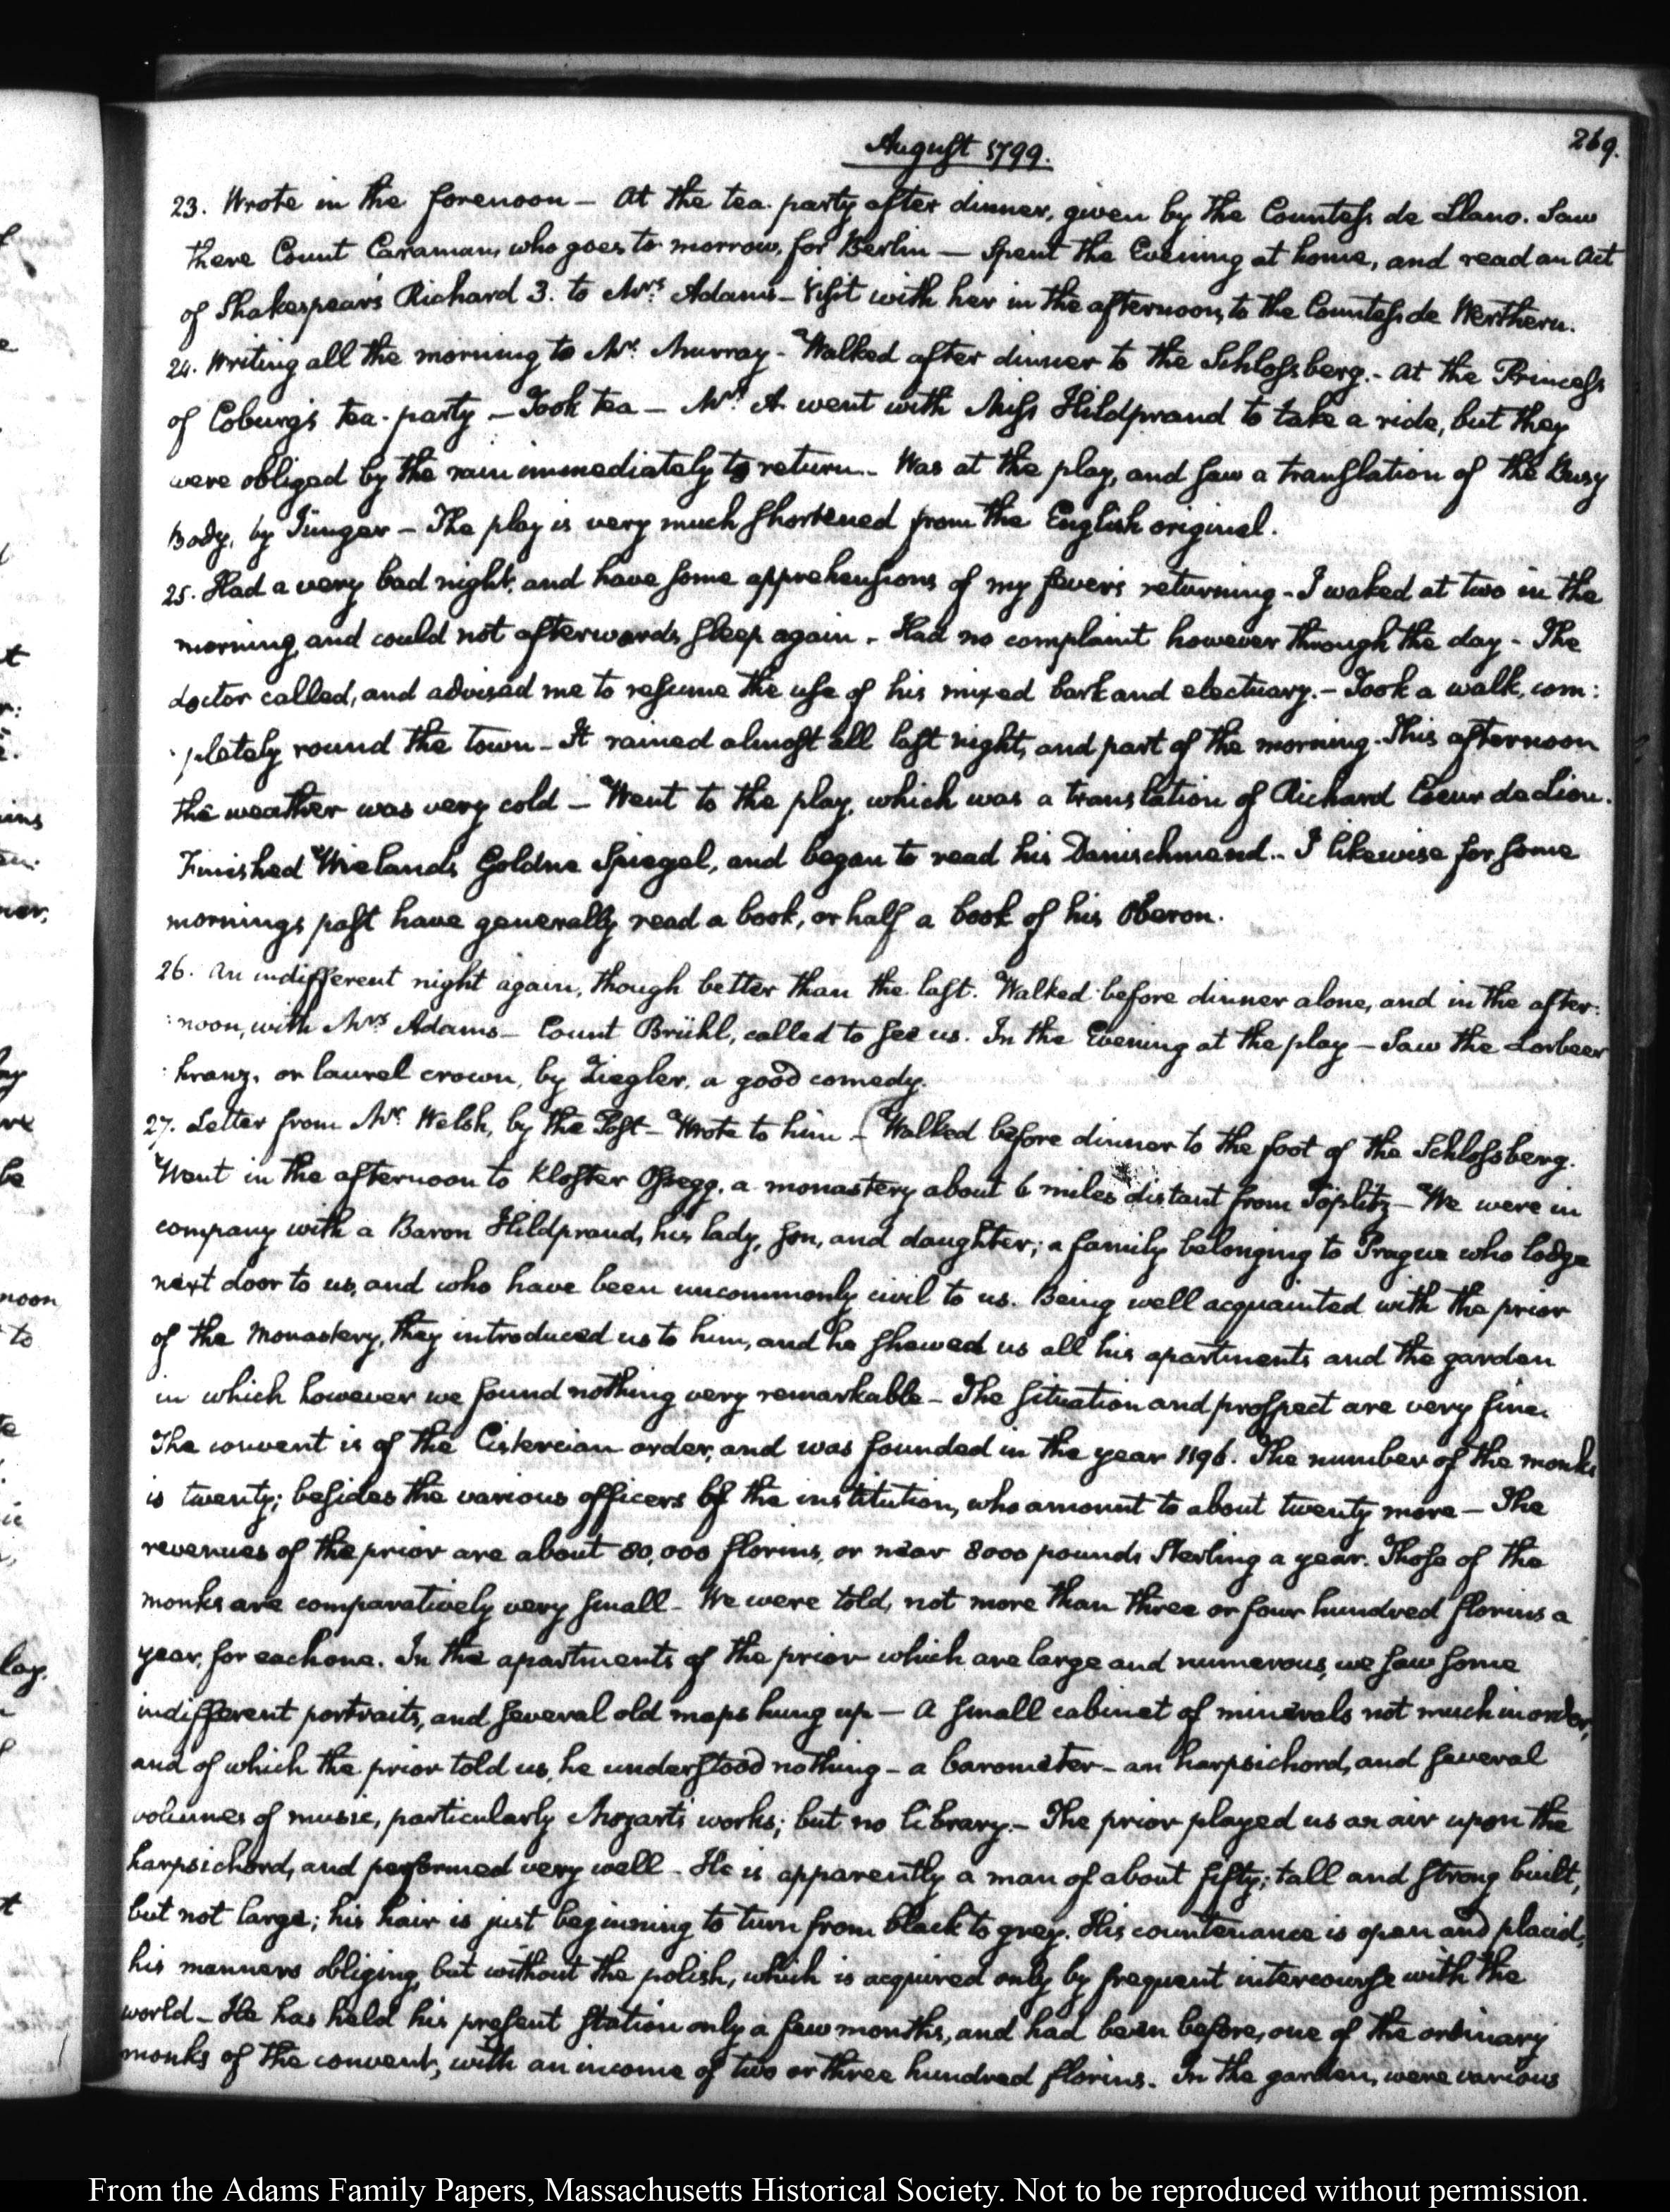 August 1799.
269.
23. Wrote in the forenoon — At the tea-party after dinner, given by the Countess de Llano. Saw
there Count Caraman, who goes to-morrow, for Berlin — Spent the Evening at home, and read an Act
of Shakespear's Richard 3. to Mrs. Adams — Visit with her in the afternoon, to the Countess de Werthern.
24. Writing all the morning to Mr. Murray — Walked after dinner to the Schlossberg. — At the Princess
of Coburg's tea-party — Took tea — Mrs. A. went with Miss Hildprand to take a ride, but they
were obliged by the rain immediately to return — Was at the play, and saw a translation of the Busy
Body, by Jünger — The play is very much shortened from the English original.
25. Had a very bad night, and have some apprehensions of my fever's returning — I waked at two in the
morning and could not afterwards sleep again — Had no complaint however through the day — The
doctor called, and advised me to resume the use of his mixed bark and electuary. — Took a walk, com:
:pletely round the town — It rained almost all last night, and part of the morning. This afternoon
the weather was very cold — Went to the play, which was a translation of Richard Coeur de Lion.
Finished Wielands Goldne Spiegel, and began to read his Danischmend. — I likewise for some
mornings past have generally read a book, or half a book of his Oberon.
26. An indifferent night again, though better than the last. Walked before dinner alone, and in the after:
:noon, with Mrs. Adams — Count Brühl, called to see us. In the Evening at the play — Saw the Lorbeer
:kranz, or laurel crown, by Ziegler, a good comedy.
27. Letter from Mr. Welsh, by the Post — Wrote to him — Walked before dinner to the foot of the Schlossberg.
Went in the afternoon to Kloster Ossegg, a monastery about 6 miles distant from Töplitz — We were in
company with a Baron Hildprand, his lady, son, and daughter; a family belonging to Prague who lodge
next door to us, and who have been uncommonly civil to us. Being well acquainted with the prior
of the Monastery, they introduced us to him, and he shewed us all his apartments and the garden
in which however we found nothing very remarkable — The situation and prospect are very fine.
The convent is of the Cistercian order, and was founded in the year 1196. The number of the monks
is twenty; besides the various officers of the institution, who amount to about twenty more — The
revenues of the prior are about 80,000 florins, or near 8000 pounds Sterling a year. Those of the
monks are comparatively very small — We were told, not more than three or four hundred florins a
year, for each one. In the apartments of the prior which are large and numerous, we saw some
indifferent portraits, and several old maps hung up — A small cabinet of minerals not much in order,
and of which the prior told us, he understood nothing — a barometer — an harpsichord, and several
volumes of music, particularly Mozart's works; but no library. — The prior played us an air upon the
harpsichord, and performed very well — He is apparently a man of about fifty; tall and strong built,
but not large; his hair is just beginning to turn from black to grey. His countenance is open and placid;
his manners obliging, but without the polish, which is acquired only by frequent intercourse with the
world — He has held his present station only a few months, and had been before, one of the ordinary
monks of the convent, with an income of two or three hundred florins. In the garden, were various
From the Adams Family Papers, Massachusetts Historical Society. Not to be reproduced without permission.